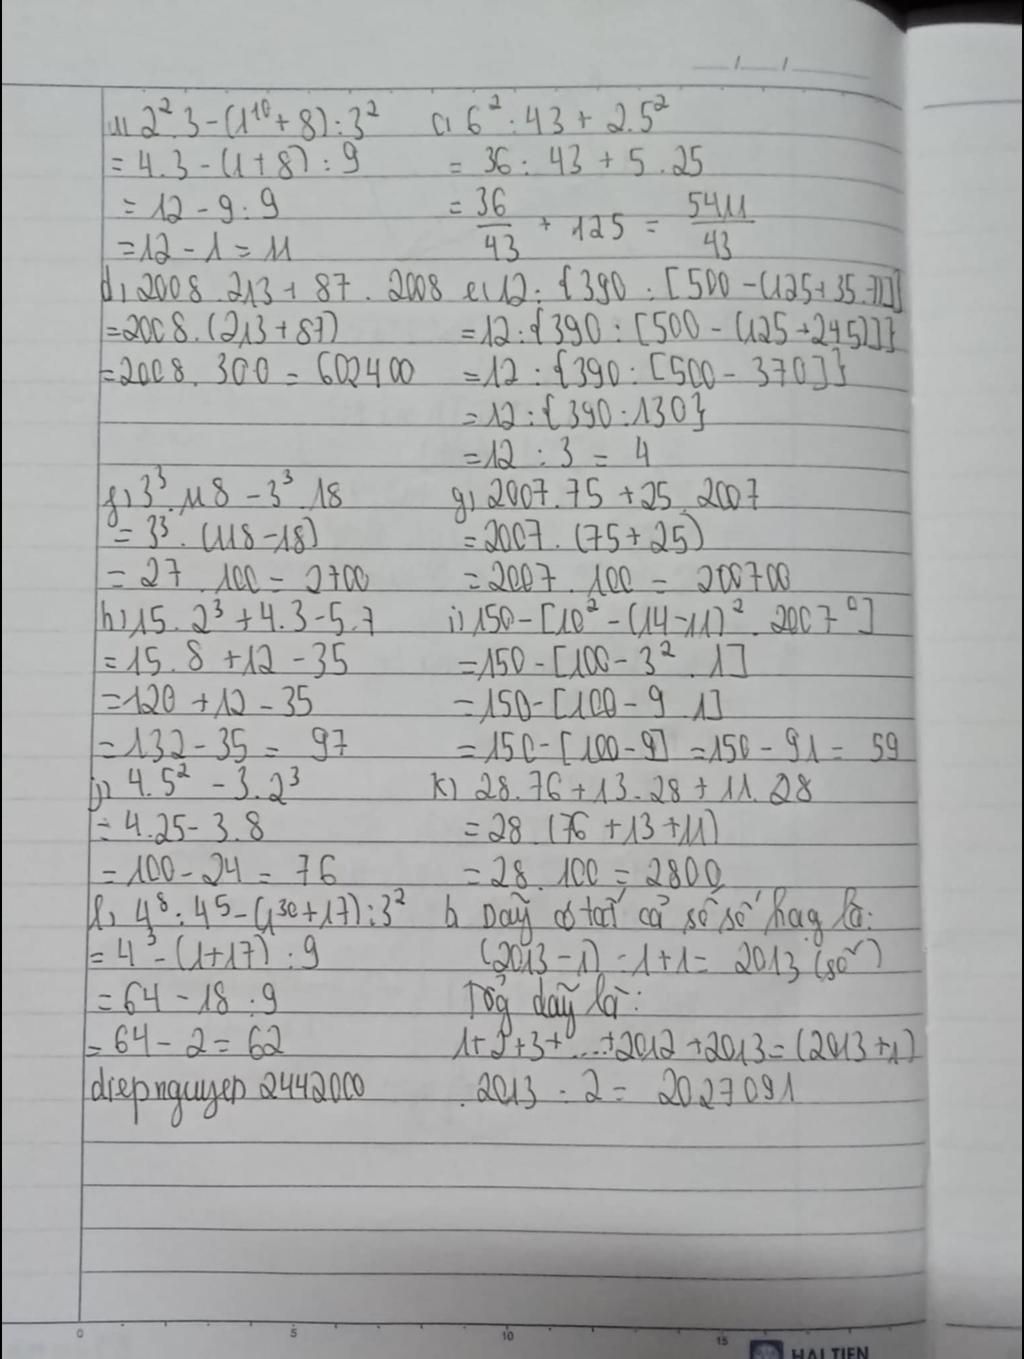 a) 2².3-(1¹⁰+8):3²
=4.3-(1+8):9
=12-9:9
=12-1=11
c) 6²:43+2.5²
=36:43+5.25
=36/43+125=5411/43
d) 2008.213+87.2008
=2008.(213+87)
=2008.300=602400
e) 12:{390:[500-(125+35.7)]}
=12:{390:[500-(125+245)]}
=12:{390:[500-370]}
=12:{390:130}
=12:3=4
f) 3³.118-3³.18
=3³.(118-18)
=27.100=2700
g) 2007.75+25.2007
=2007.(75+25)
=2007.100=200700
h) 15.2³+4.3-5.7
=15.8+12-35
=120+12-35
=132-35=97
i) 150-[10²-(14-11)².2007⁰]
=150-[100-3².1]
=150-[100-9.1]
=150-[100-9]=150-91=59
j) 4.5²-3.2³
=4.25-3.8
=100-24=76
k) 28.76+13.28+11.28
=28.(76+13+11)
=28.100=2800
l) 4⁸:4⁵-(1³⁰+17):3²
=4³-(1+17):9
=64-18:9
=64-2=62
diepnguyen 2442000
b, Dãy có tất cả số số hạg là:
(2013-1):1+1=2013 (số)
Tổg dãy là:
1+2+3+...+2012+2013=(2013+1)
.2013:2=2027091
0 5 10 15
HẢI TIẾN